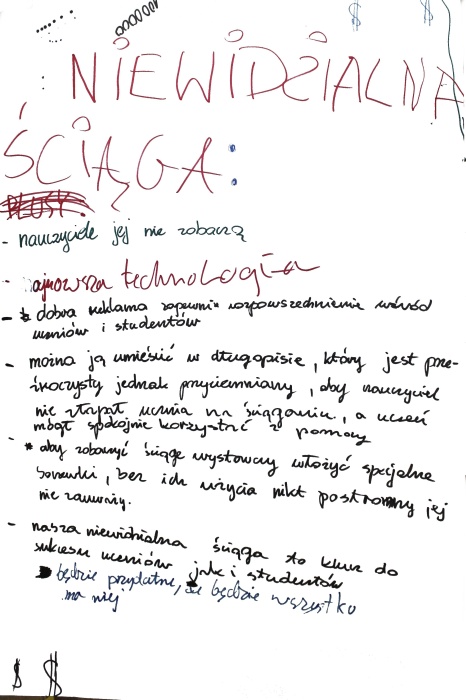 $ $
NIEWIDZIALNA
ŚCIĄGA:
PLUSY:
- nauczyciele jej nie zobaczą
- najnowsza technologia
- dobra reklama zapewni rozpowszechnienie wśród
uczniów i studentów
- można ją umieścić w długopisie, który jest prze-
źroczysty jednak przyciemniany, aby nauczyciel
nie złapał ucznia na ściąganiu, a uczeń
mógł spokojnie korzystać z pomocy
- * aby zobaczyć ściągę wystarczy włożyć specjalne
soczewki, bez ich użycia nikt postronny jej
nie zauważy.
- nasza niewidzialna ściąga to klucz do
sukcesu uczniów jak i studentów
będzie przydatne, że będzie wszystko
na niej
$ $